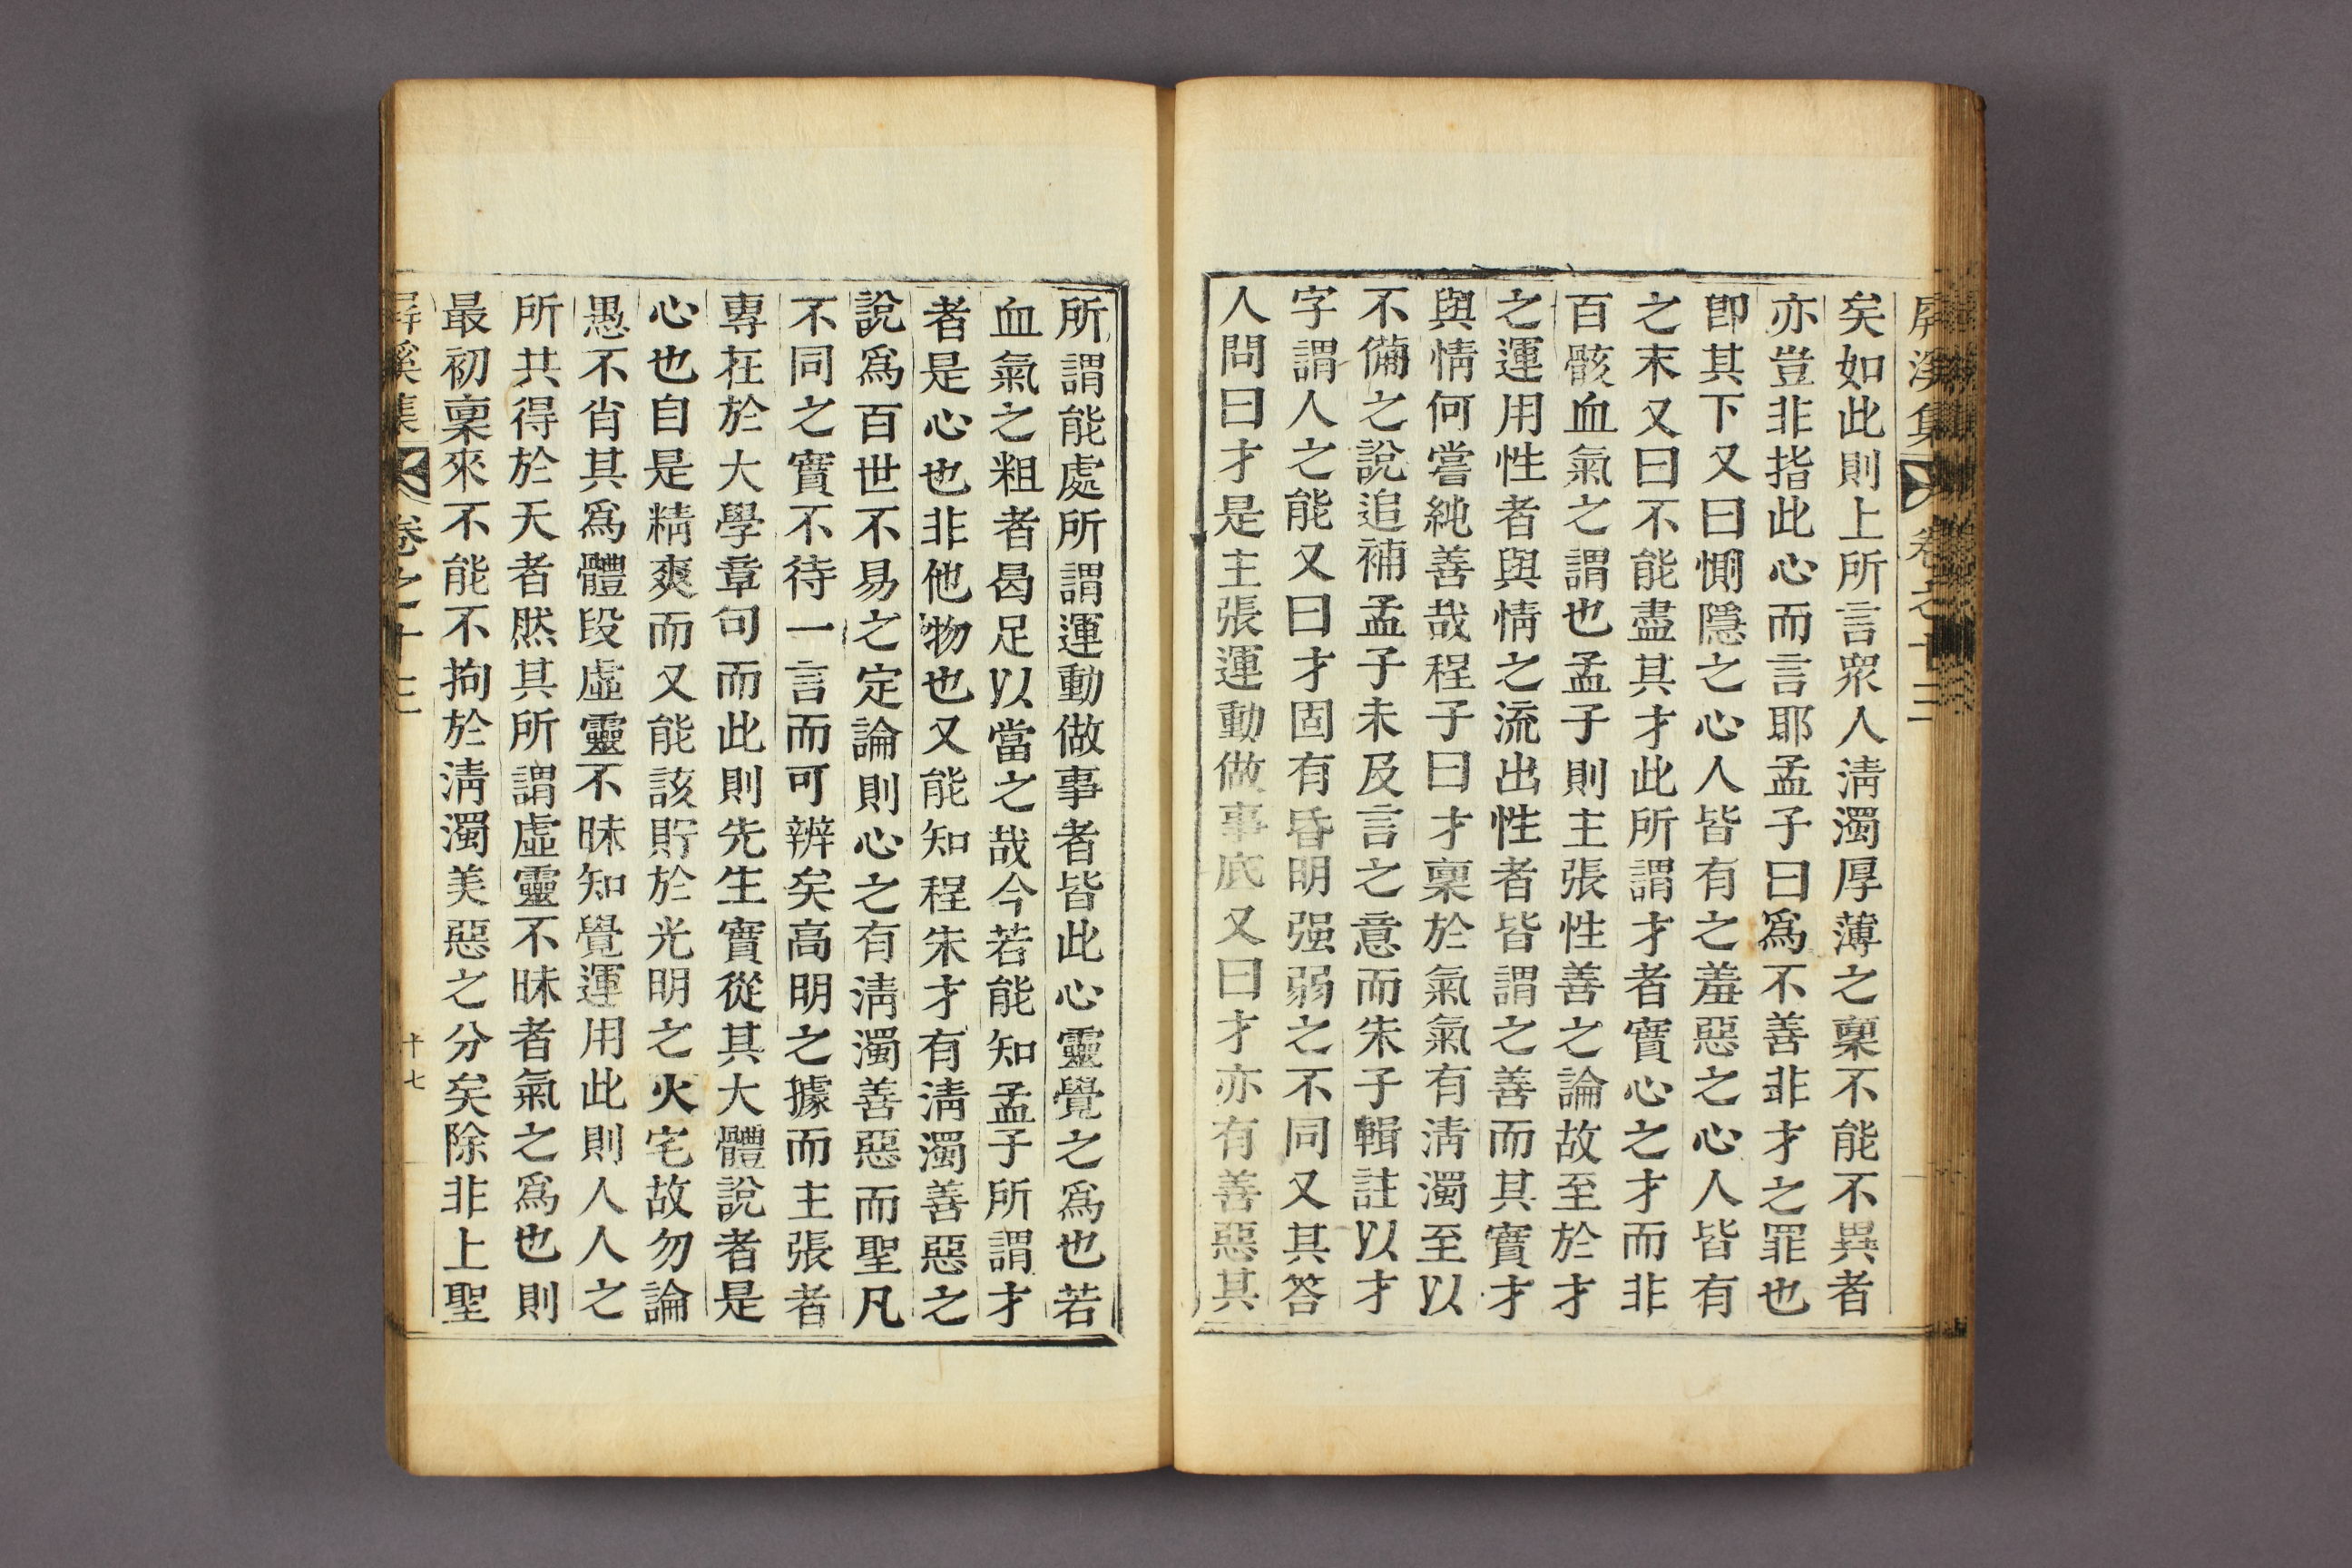 屛溪集 卷之十三
矣如此則上所言衆人淸濁厚薄之稟不能不異者
亦豈非指此心而言耶孟子曰爲不善非才之罪也
卽其下又曰惻隱之心人皆有之羞惡之心人皆有
之末又曰不能盡其才此所謂才者實心之才而非
百骸血氣之謂也孟子則主張性善之論故至於才
之運用性者與情之流出性者皆謂之善而其實才
與情何嘗純善哉程子曰才稟於氣氣有淸濁至以
不備之說追補孟子未及言之意而朱子輯註以才
字謂人之能又曰才固有昏明强弱之不同又其答
人問曰才是主張運動做事底又曰才亦有善惡其
所謂能處所謂運動做事者皆此心靈覺之爲也若
血氣之粗者曷足以當之哉今若能知孟子所謂才
者是心也非他物也又能知程朱才有淸濁善惡之
說爲百世不易之定論則心之有淸濁善惡而聖凡
不同之實不待一言而可辨矣高明之據而主張者
專在於大學章句而此則先生實從其大體說者是
心也自是精爽而又能該貯於光明之火宅故勿論
愚不肖其爲體段虛靈不昧知覺運用此則人人之
所共得於天者然其所謂虛靈不昧者氣之爲也則
最初稟來不能不拘於淸濁美惡之分矣除非上聖
屛溪集 卷之十三 十七